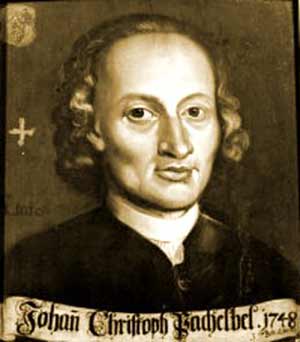 Johañ Christoph Pachelbel. 1748